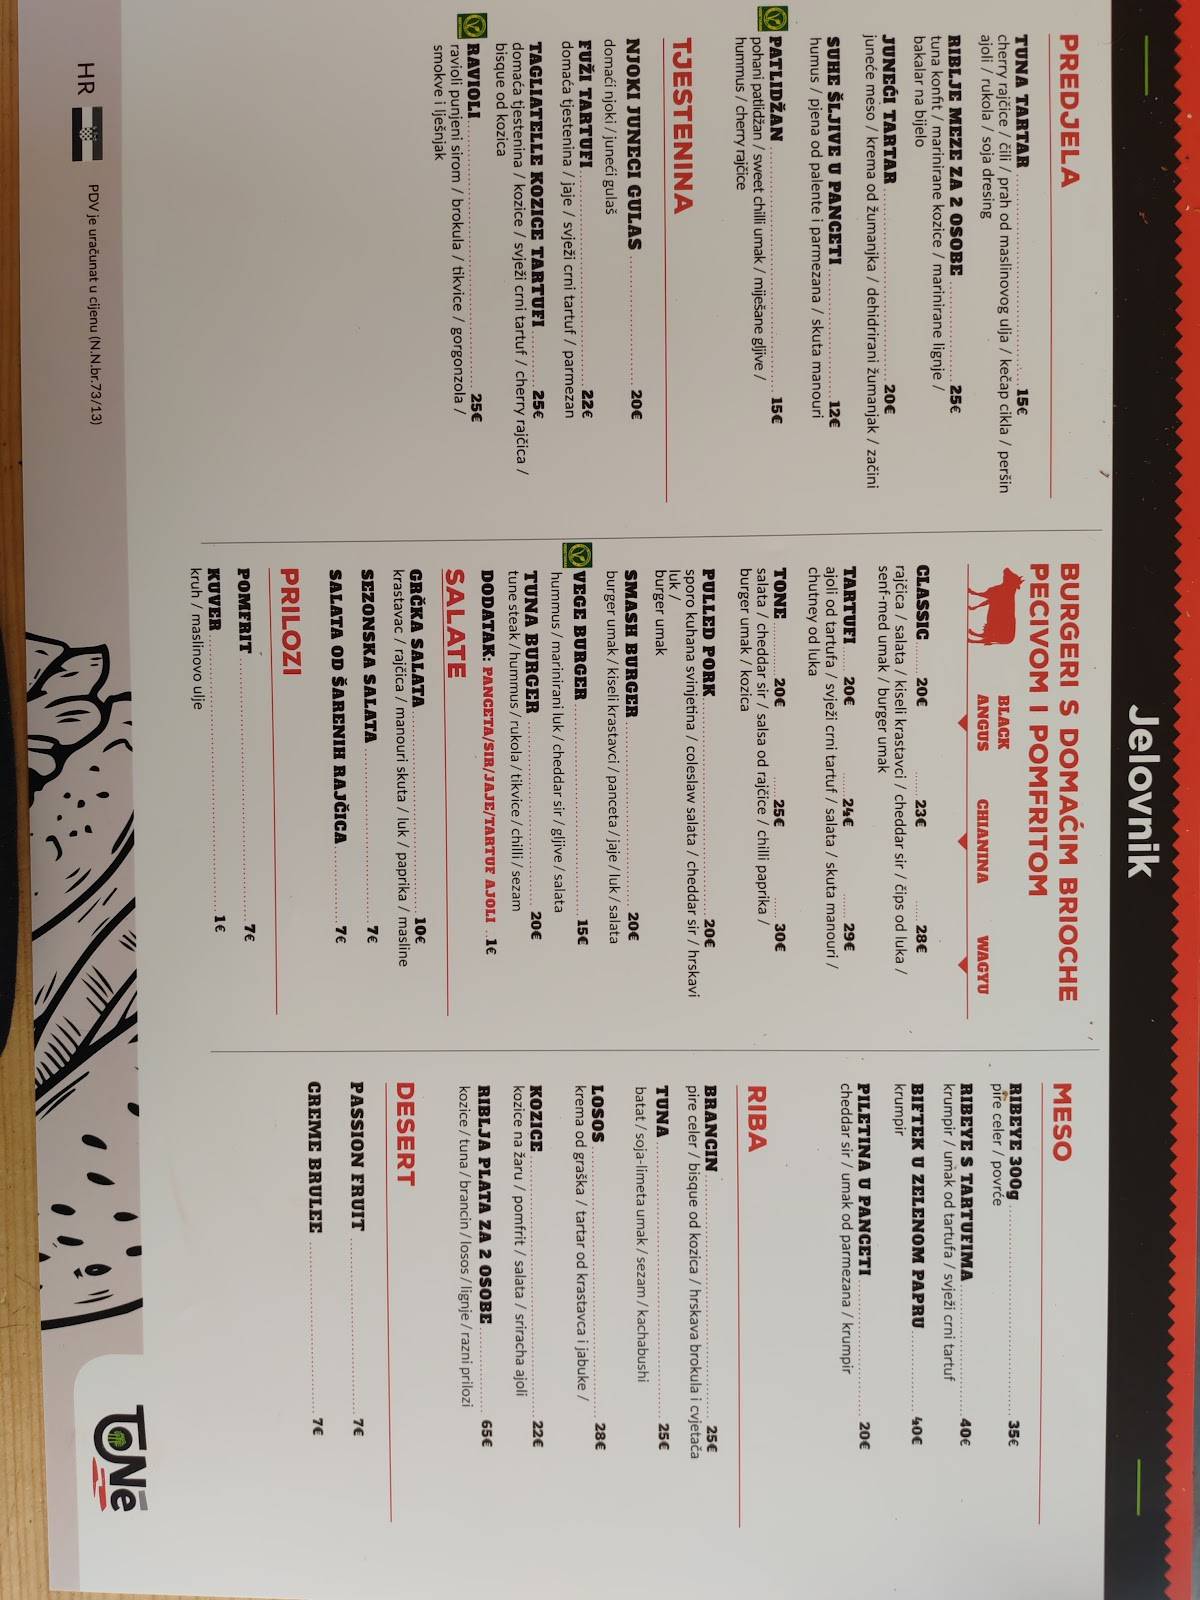 Jelovnik
PREDJELA
TUNA TARTAR 15€
cherry rajčice / čili / prah od maslinovog ulja / kečap cikla / peršin
ajoli / rukola / soja dresing
RIBLJE MEZE ZA 2 OSOBE 25€
tuna konfit / marinirane kozice / marinirane lignje /
bakalar na bijelo
JUNEĆI TARTAR 20€
juneće meso / krema od žumanjka / dehidrirani žumanjak / začini
SUHE ŠLJIVE U PANCETI 12€
humus / pjena od palente i parmezana / skuta manouri
PATLIDŽAN 15€
pohani patlidžan / sweet chilli umak / miješane gljive /
hummus / cherry rajčice
TJESTENINA
NJOKI JUNECI GULAS 20€
domaći njoki / juneći gulaš
FUŽI TARTUFI 22€
domaća tjestenina / jaje / svježi crni tartuf / parmezan
TAGLIATELLE KOZICE TARTUFI 25€
domaća tjestenina / kozice / svježi crni tartuf / cherry rajčica /
bisque od kozica
RAVIOLI 25€
ravioli punjeni sirom / brokula / tikvice / gorgonzola /
smokve i lješnjak
BURGERI S DOMAĆIM BRIOCHE
PECIVOM I POMFRITOM
BLACK
ANGUS CHIANINA WAGYU
CLASSIC 20€ 23€ 28€
rajčica / salata / kiseli krastavci / cheddar sir / čips od luka /
senf-med umak / burger umak
TARTUFI 20€ 24€ 29€
ajoli od tartufa / svježi crni tartuf / salata / skuta manouri /
chutney od luka
TONE 20€ 25€ 30€
salata / cheddar sir / salsa od rajčice / chilli paprika /
burger umak / kozica
PULLED PORK 20€
sporo kuhana svinjetina / coleslaw salata / cheddar sir / hrskavi
luk /
burger umak
SMASH BURGER 20€
burger umak / kiseli krastavci / panceta / jaje / luk / salata
VEGE BURGER 15€
hummus / marinirani luk / cheddar sir / gljive / salata
TUNA BURGER 20€
tune steak / hummus / rukola / tikvice / chilli / sezam
DODATAK: PANCETA/SIR/JAJE/TARTUF AJOLI 1€
SALATE
GRČKA SALATA 10€
krastavac / rajčica / manouri skuta / luk / paprika / masline
SEZONSKA SALATA 7€
SALATA OD ŠARENIH RAJČICA 7€
PRILOZI
POMFRIT 7€
KUVER 1€
kruh / maslinovo ulje
MESO
RIBEYE 300g 35€
pire celer / povrće
RIBEYE S TARTUFIMA 40€
krumpir / umak od tartufa / svježi crni tartuf
BIFTEK U ZELENOM PAPRU 40€
krumpir
PILETINA U PANCETI 20€
cheddar sir / umak od parmezana / krumpir
RIBA
BRANCIN 25€
pire celer / bisque od kozica / hrskava brokula i cvjetača
TUNA 25€
batat / soja-limeta umak / sezam / kachabushi
LOSOS 28€
krema od graška / tartar od krastavca i jabuke /
KOZICE 22€
kozice na žaru / pomfrit / salata / sriracha ajoli
RIBLJA PLATA ZA 2 OSOBE 65€
kozice / tuna / brancin / losos / lignje / razni prilozi
DESERT
PASSION FRUIT 7€
CREME BRULEE 7€
HR PDV je uračunat u cijenu (N.N.br.73/13)
TONe